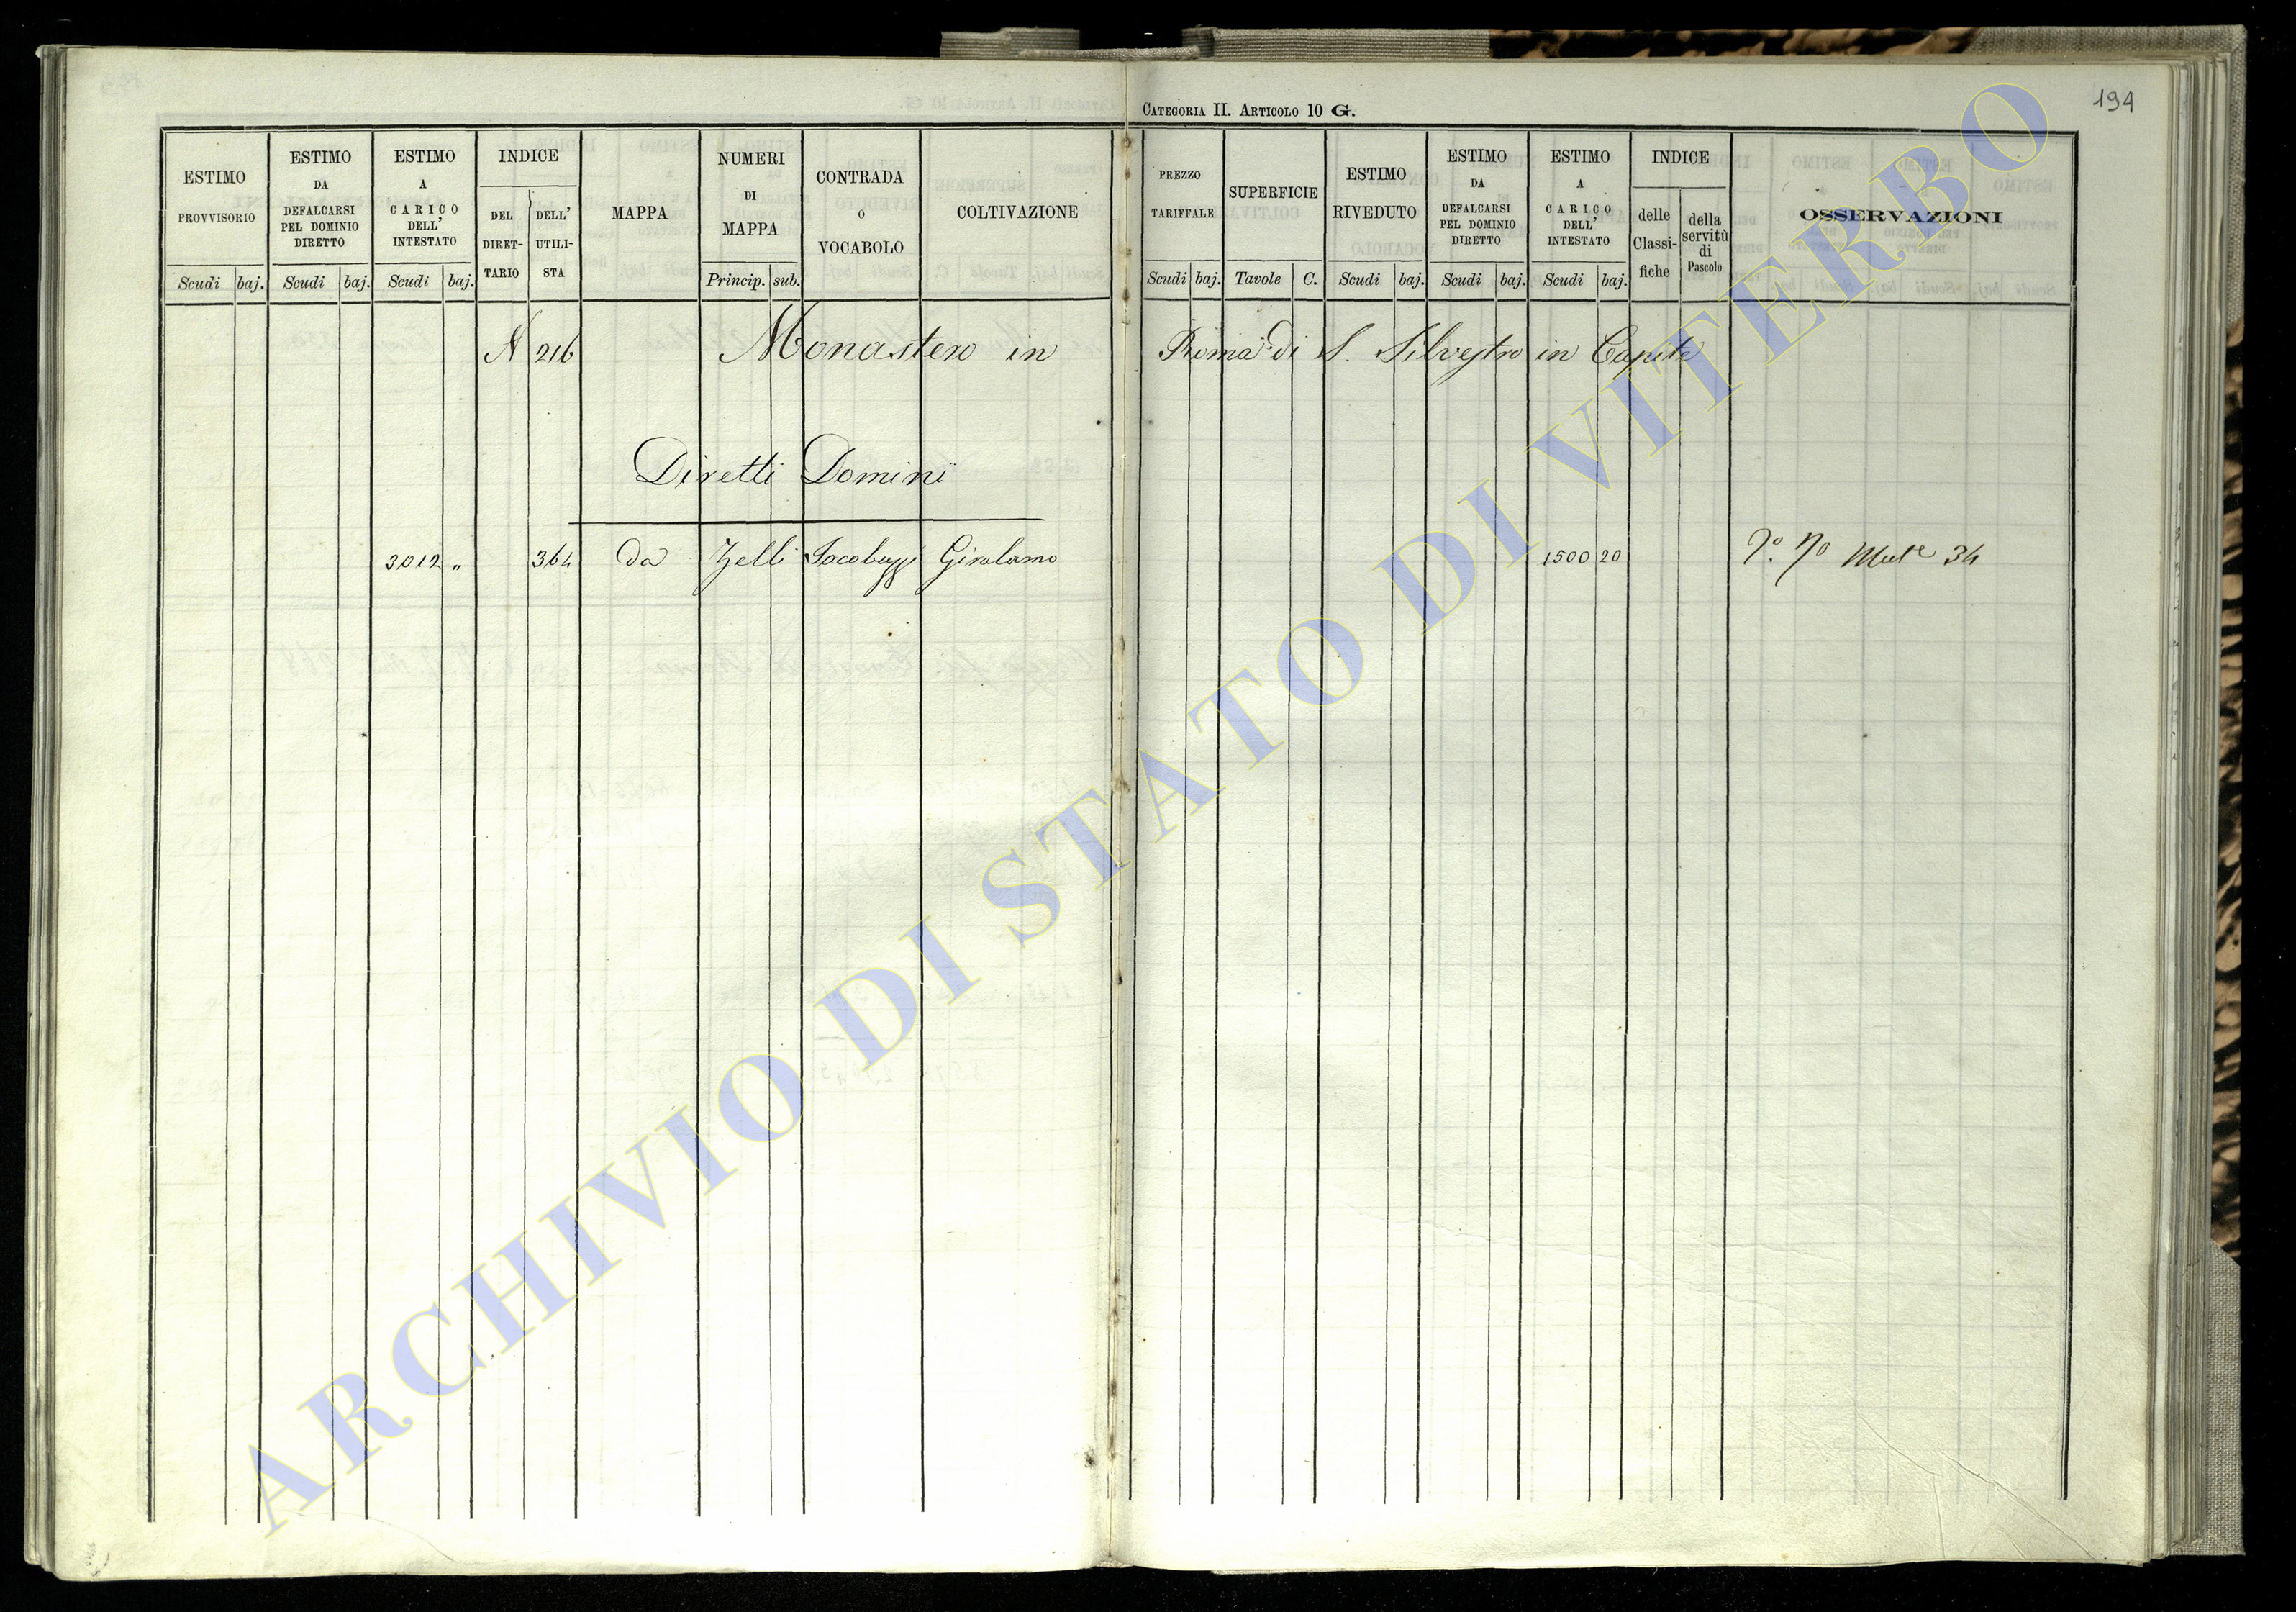 CATEGORIA II. ARTICOLO 10 G.
194
ESTIMO PROVVISORIO
Scudi baj.
ESTIMO DA DEFALCARSI PEL DOMINIO DIRETTO
Scudi baj.
ESTIMO A CARICO DELL' INTESTATO
Scudi baj.
INDICE
DEL DIRET-TARIO
DELL' UTILI-STA
MAPPA
NUMERI DI MAPPA
Princip. sub.
CONTRADA O VOCABOLO
COLTIVAZIONE
PREZZO TARIFFALE
Scudi baj.
SUPERFICIE
Tavole C.
ESTIMO RIVEDUTO
Scudi baj.
ESTIMO DA DEFALCARSI PEL DOMINIO DIRETTO
Scudi baj.
ESTIMO A CARICO DELL' INTESTATO
Scudi baj.
INDICE
delle Classi-fiche
della servitù di Pascolo
OSSERVAZIONI
N 216 Monastero in Roma di S. Silvestro in Capite
Diretti Domini
3012 " 364 Da Zelli Jacobuzzi Girolamo 1500 20 34
ARCHIVIO DI STATO DI VITERBO